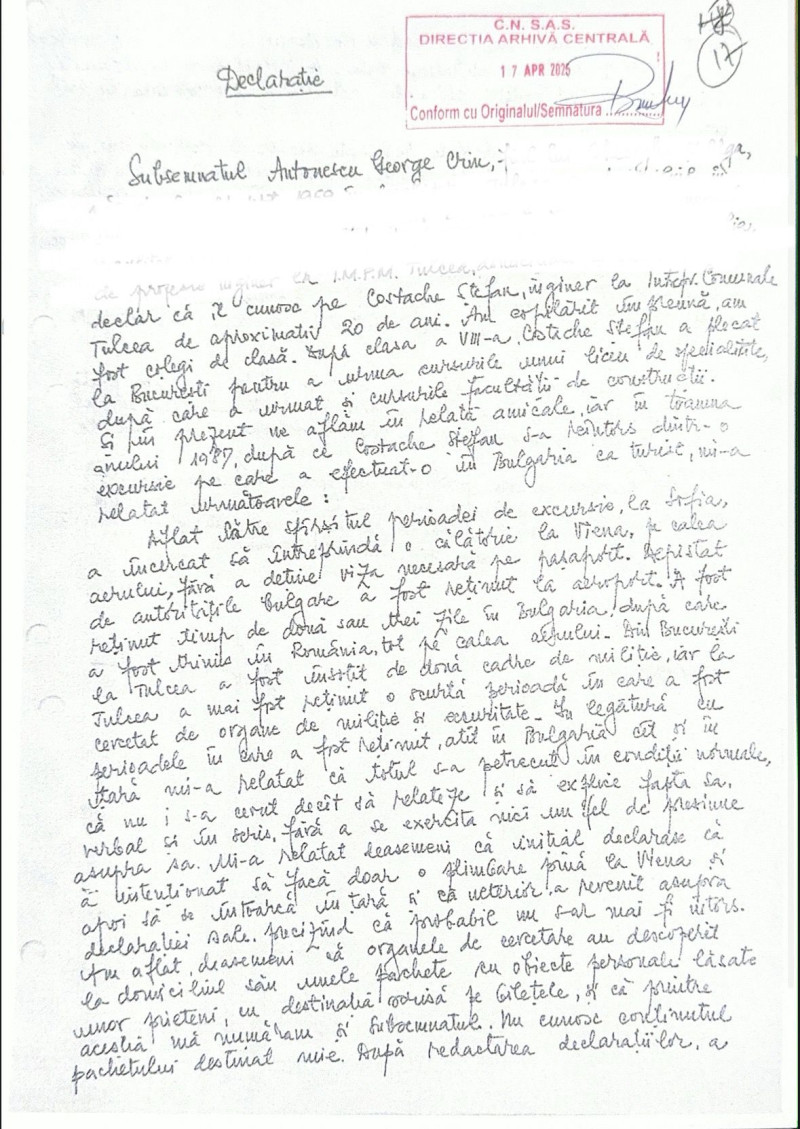 C.N. S.A.S.
DIRECȚIA ARHIVĂ CENTRALĂ
17 APR 2025
Conform cu Originalul/Semnatura
17
Declarație
Subsemnatul Antonescu George Crin,
de profesie inginer la I.M.P.M. Tulcea,
declar că îl cunosc pe Costache Ștefan, inginer la Întrepr. Comunale
Tulcea de aproximativ 20 de ani. Am copilărit împreună, am
fost colegi de clasă. După clasa a VIII-a, Costache Ștefan a plecat
la București pentru a urma cursurile unui liceu de specialitate,
după care a urmat și cursurile facultății de construcții.
Și în prezent ne aflăm în relații amicale, iar în toamna
anului 1987, după ce Costache Ștefan s-a reîntors dintr-o
excursie pe care a efectuat-o în Bulgaria ca turist, mi-a
relatat următoarele:
Aflat către sfîrșitul perioadei de excursie, la Sofia,
a încercat să întreprindă o călătorie la Viena, pe calea
aerului, fără a deține viza necesară pe pașaport. Depistat
de autoritățile bulgare a fost reținut la aeroport. A fost
reținut timp de două sau trei zile în Bulgaria, după care
a fost trimis în România, tot pe calea aerului. Din București
la Tulcea a fost însoțit de două cadre de miliție, iar la
Tulcea a mai fost reținut o scurtă perioadă în care a fost
cercetat de organe de miliție și securitate. În legătură cu
perioadele în care a fost reținut, atît în Bulgaria cît și în
țară mi-a relatat că totul s-a petrecut în condiții normale,
că nu i s-a cerut decît să relateze și să explice fapta sa,
verbal și în scris, fără a se exercita nici un fel de presiune
asupra sa. Mi-a relatat deasemeni că inițial declarase că
a intenționat să facă doar o plimbare pînă la Viena și
apoi să se întoarcă în țară și că ulterior a revenit asupra
declarației sale, precizînd că probabil nu s-ar mai fi întors.
Am aflat, deasemeni că organele de cercetare au descoperit
la domiciliul său unele pachete cu obiecte personale lăsate
unor prieteni, cu destinația scrisă pe bilețele, și că printre
aceștia mă număram și subsemnatul. Nu cunosc conținutul
pachetului destinat mie. După redactarea declarațiilor, a